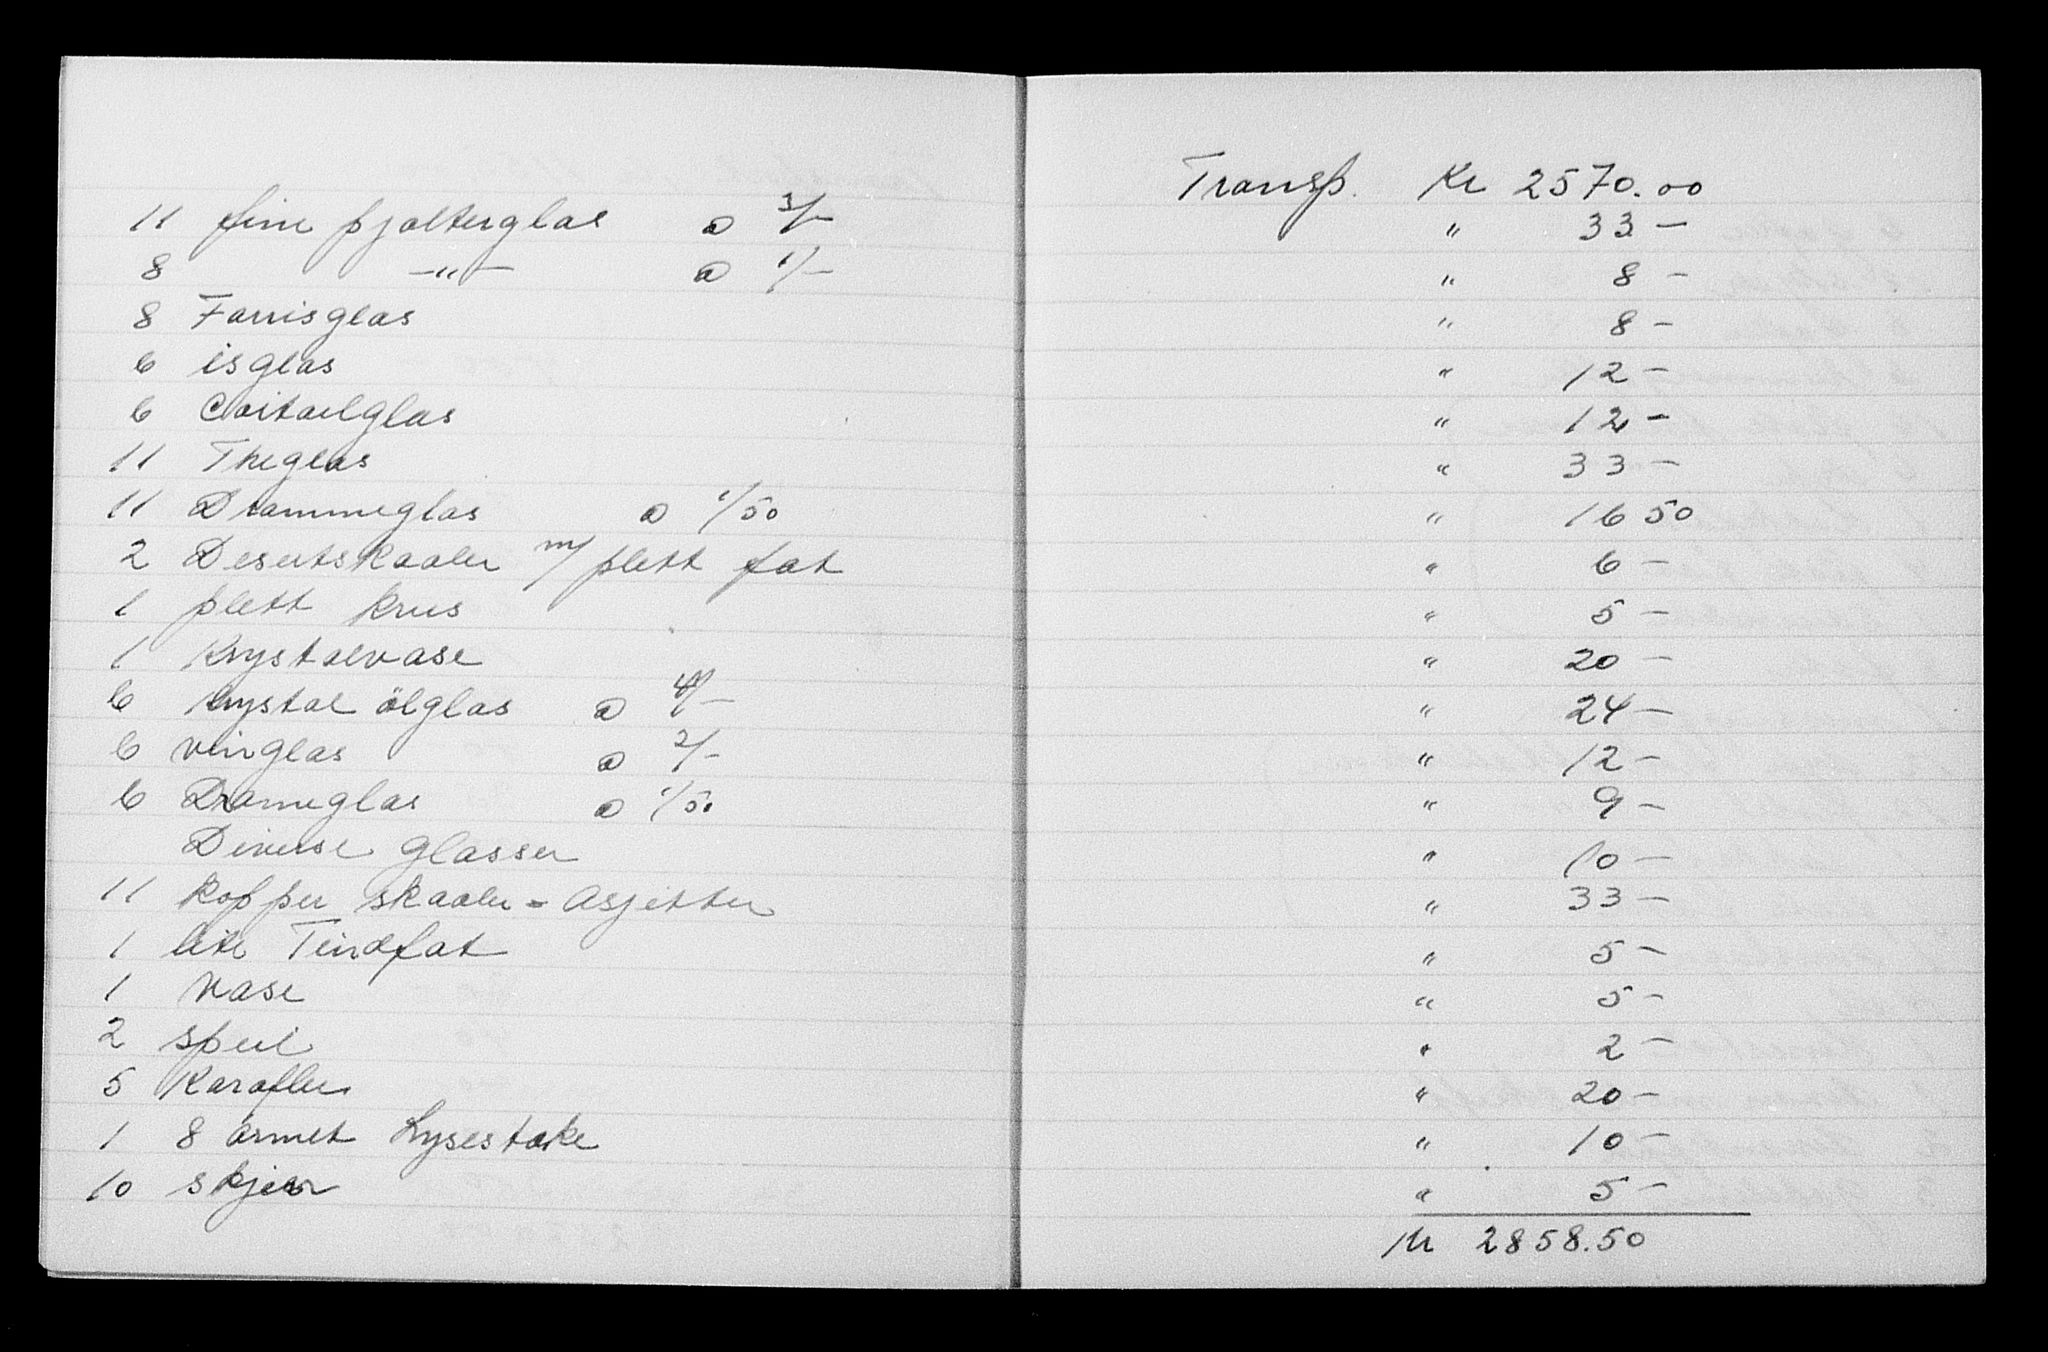 Transp. Kr 2570.00
11 fine pjolterglas a 3/- " 33 -
8 -"- a 1/- " 8 -
8 Farrisglas " 8 -
6 isglas " 12 -
6 Coctailglas " 12 -
11 Theglas " 33 -
11 Drammeglas a 1/50 " 16 50
2 Desertskaaler m/ plett fat " 6 -
1 plett krus " 5 -
1 Krystalvase " 20 -
6 krystal ölglas a 4/- " 24 -
6 vinglas a 2/- " 12 -
6 Drameglas a 1/50 " 9 -
Diverse glasser " 10 -
11 kopper skaaler - Asjetter " 33 -
1 lite Tindfat " 5 -
1 vase " 5 -
2 speil " 2 -
5 Karafler " 20 -
1 8 armet Lysestake " 10 -
10 skjeer " 5 -
Kr 2858.50